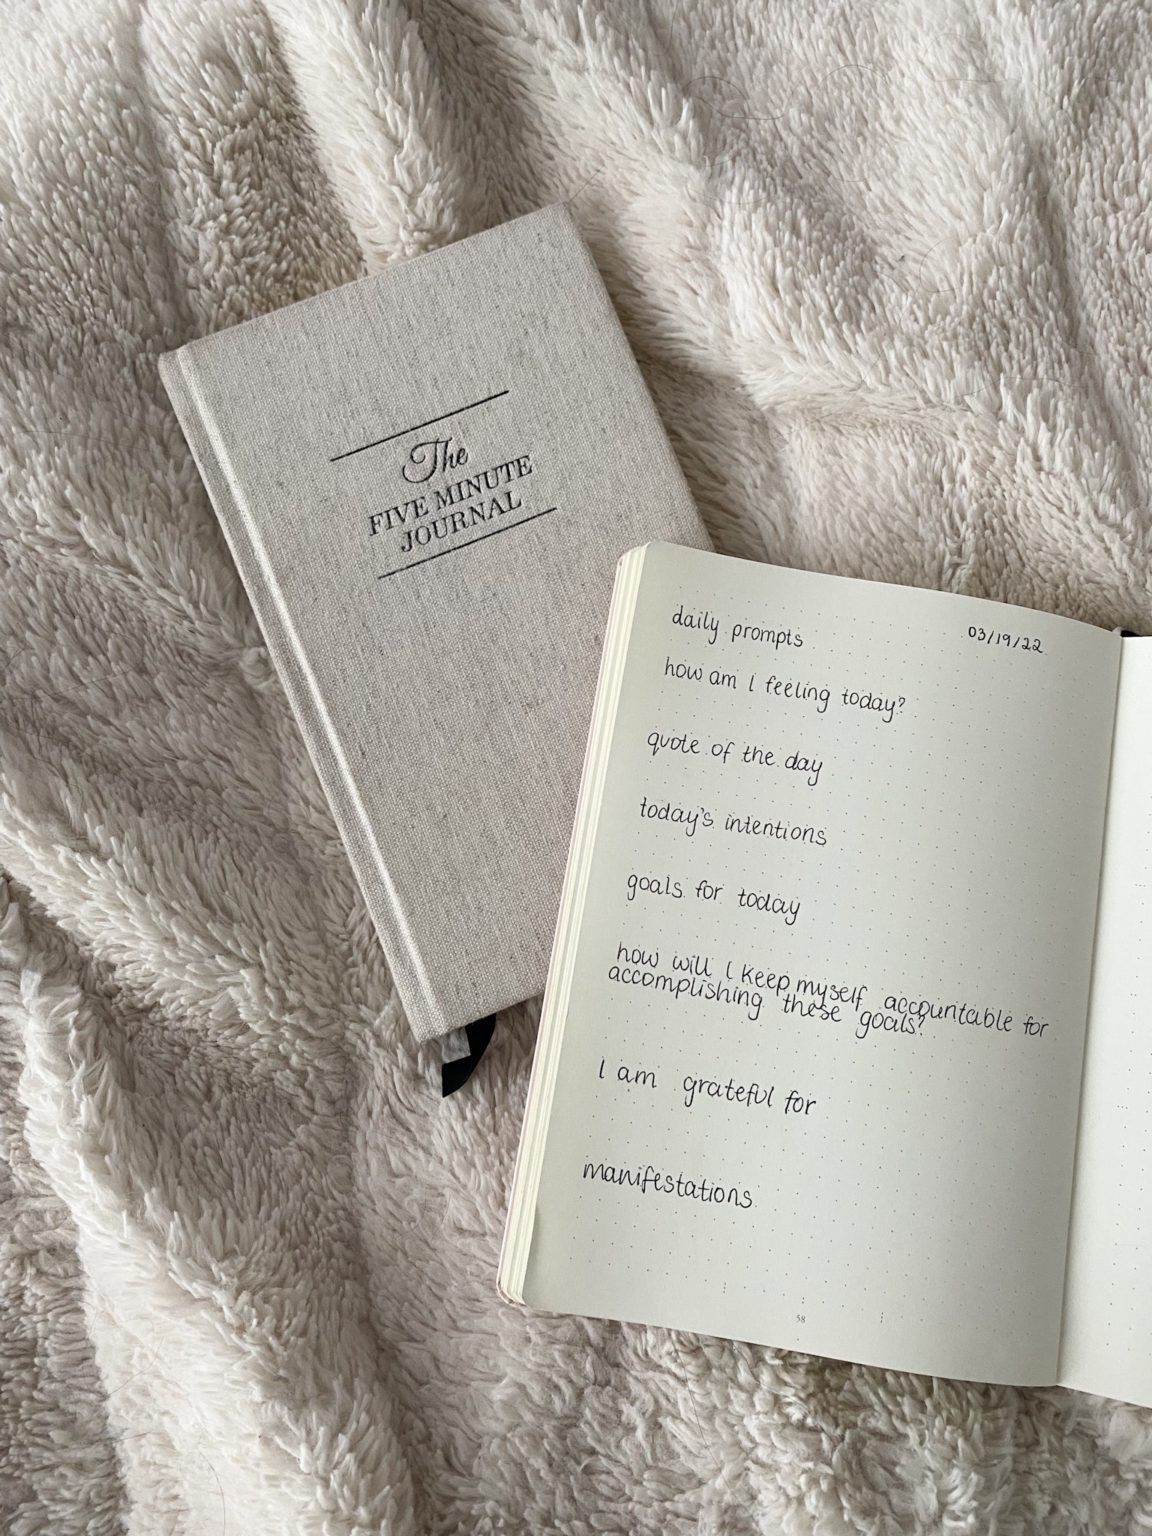 The
FIVE MINUTE
JOURNAL
daily prompts
03/19/22
how am I feeling today?
quote of the day
today's intentions
goals for today
how will I keep myself accountable for
accomplishing these goals?
I am grateful for
manifestations
58